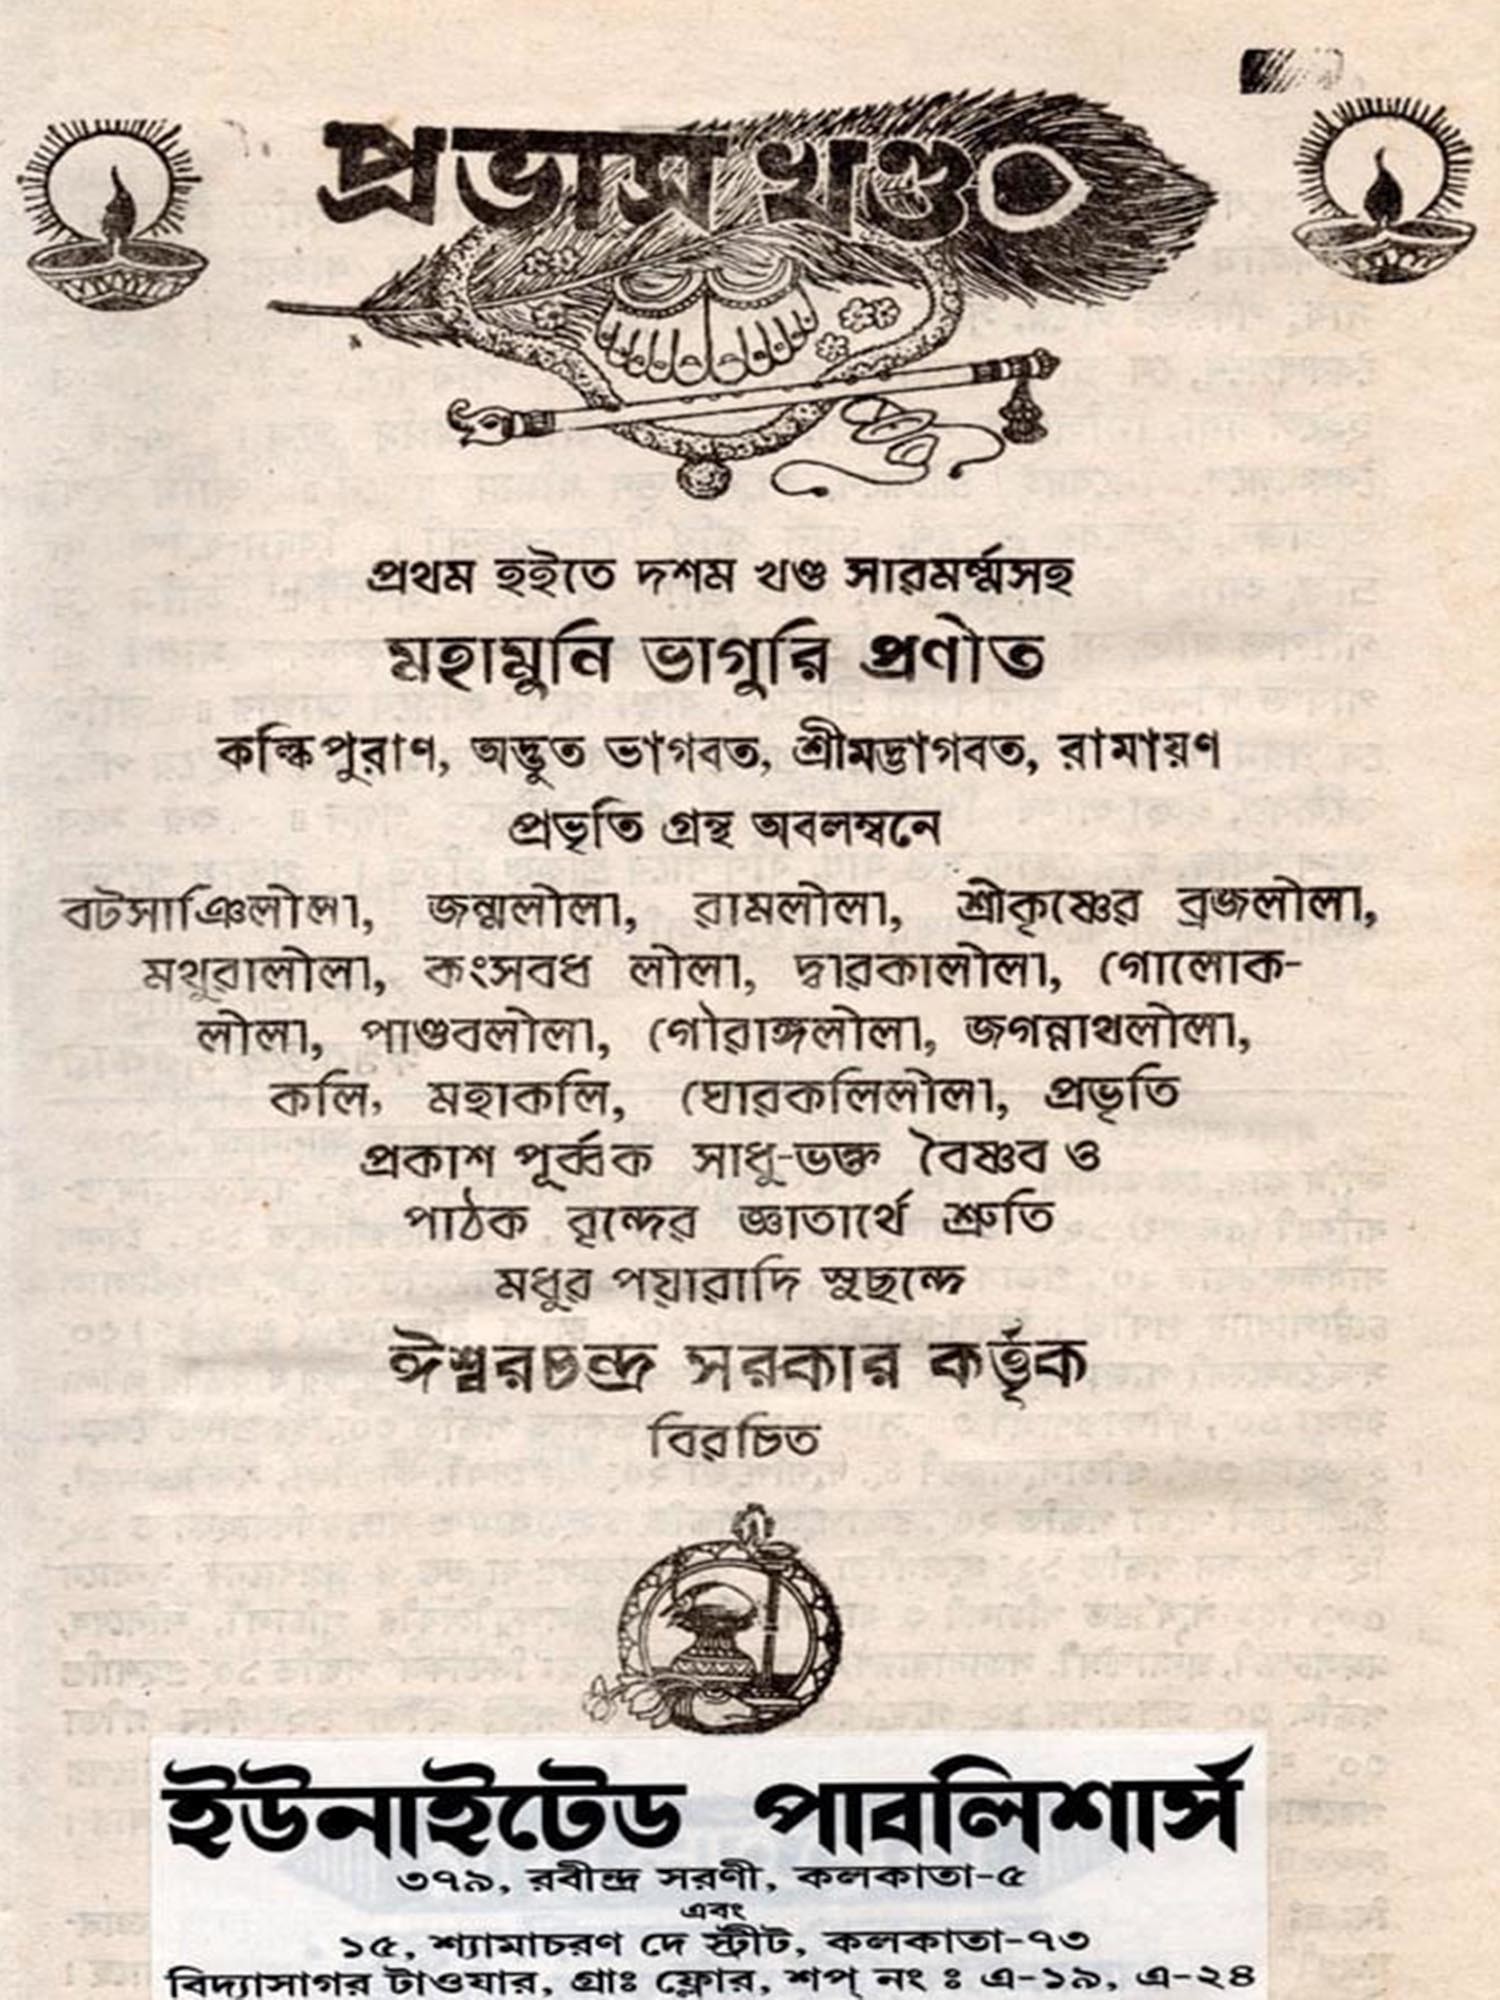 প্রভাস খণ্ড
প্রথম হইতে দশম খণ্ড সারমর্ম্মসহ
মহামুনি ভাগুরি প্রণীত
কল্কিপুরাণ, অদ্ভুত ভাগবত, শ্রীমদ্ভাগবত, রামায়ণ
প্রভৃতি গ্রন্থ অবলম্বনে
বটসাঞিলীলা, জন্মলীলা, রামলীলা, শ্রীকৃষ্ণের ব্রজলীলা,
মথুরালীলা, কংসবধ লীলা, দ্বারকালীলা, গোলোক-
লীলা, পাণ্ডবলীলা, গৌরাঙ্গলীলা, জগন্নাথলীলা,
কলি, মহাকলি, ঘোরকলিলীলা, প্রভৃতি
প্রকাশ পূর্ব্বক সাধু-ভক্ত বৈষ্ণব ও
পাঠক বৃন্দের জ্ঞাতার্থে শ্রুতি
মধুর পয়ারাদি সুছন্দে
ঈশ্বরচন্দ্র সরকার কর্ত্তৃক
বিরচিত
ইউনাইটেড পাবলিশার্স
৩৭৯, রবীন্দ্র সরণী, কলকাতা-৫
এবং
১৫, শ্যামাচরণ দে স্ট্রীট, কলকাতা-৭৩
বিদ্যাসাগর টাওযার, গ্রাঃ ফ্লোর, শপ্ নং ঃ এ-১৯, এ-২৪